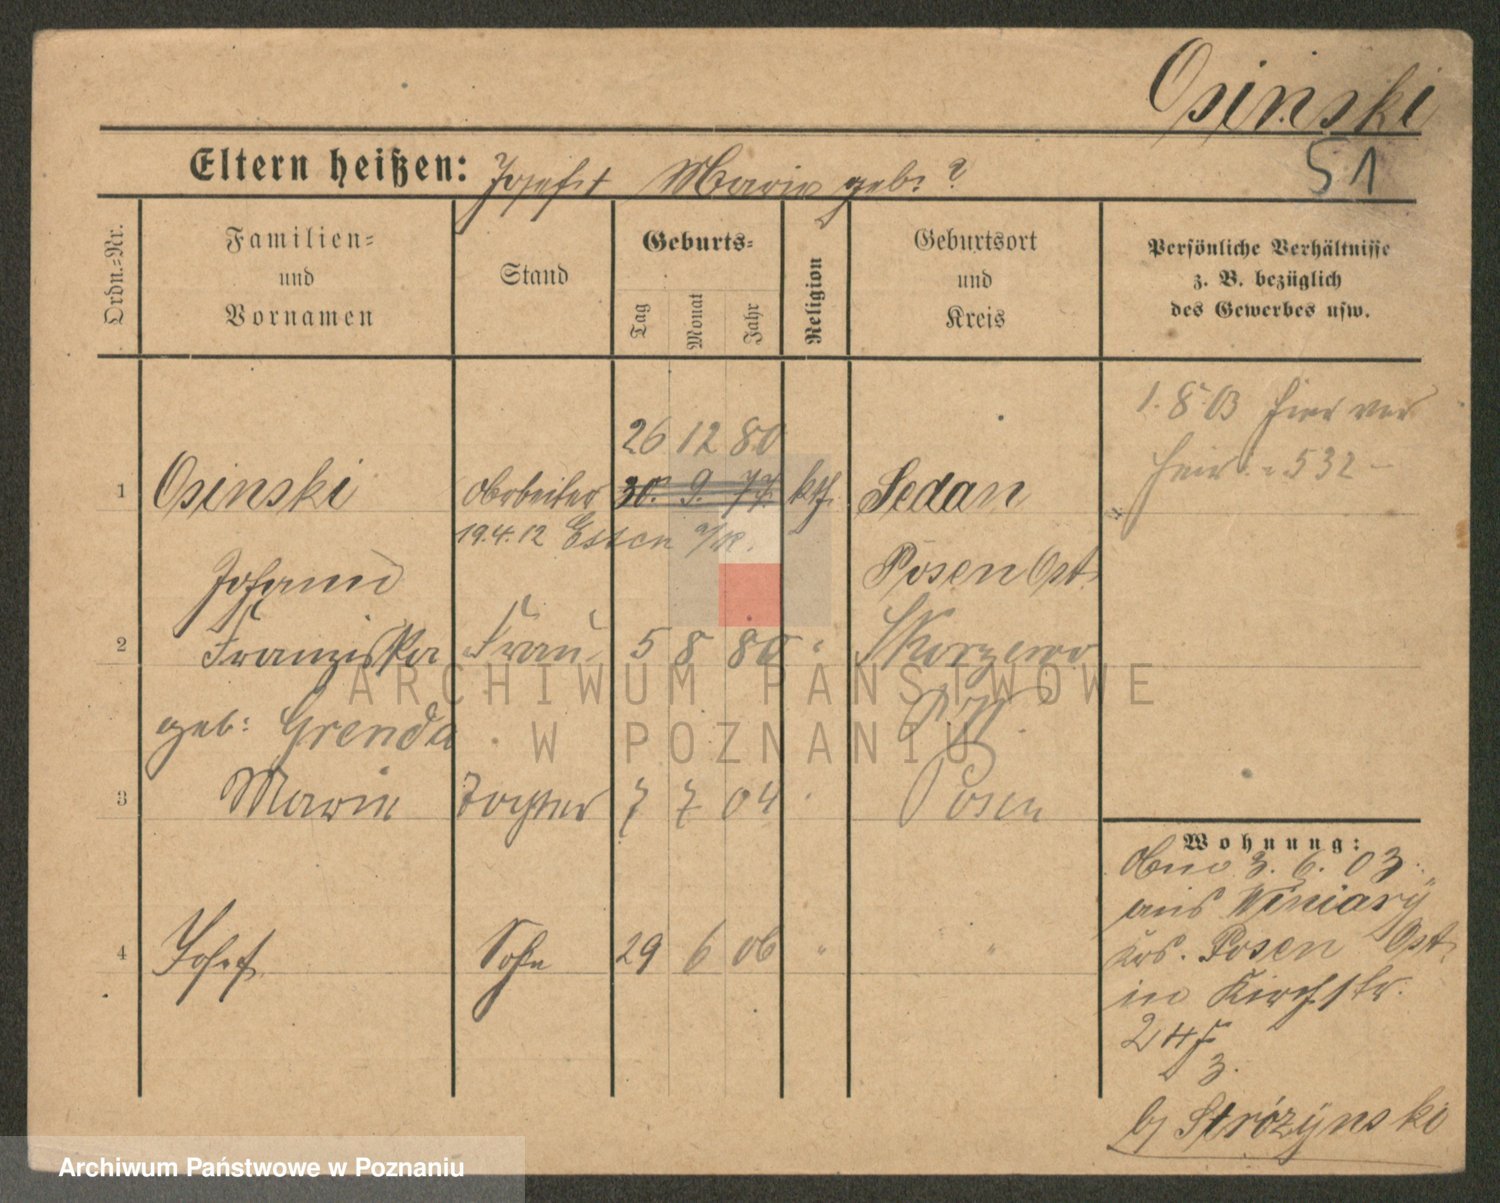 Osinski
51
Eltern heißen: Josef + Marie geb: ?
Ordn.-Nr.
Familien-
und
Vornamen
Stand
Geburts-
Tag
Monat
Jahr
Religion
Geburtsort
und
Kreis
Persönliche Verhältnisse
z. B. bezüglich
des Gewerbes usw.
1. 8 03 hier ver
heir. 532
26 12 80
1 Osinski 30. 9. 77. kth. Sedan
19.4.12 Essen a/R.
Johann Posen Ost.
2 Franziska Frau 5 8 80 " Skorzewo
geb: Grenda
3 Marie Tochter 7 7 04 Posen
4 Josef Sohn 29 6 06 " "
Wohnung:
3. 6. 03.
aus Winiary
Krs. Posen Ost.
in Kirchstr.
3.
b/ Strózÿnski
ARCHIWUM PAŃSTWOWE
W POZNANIU
Archiwum Państwowe w Poznaniu